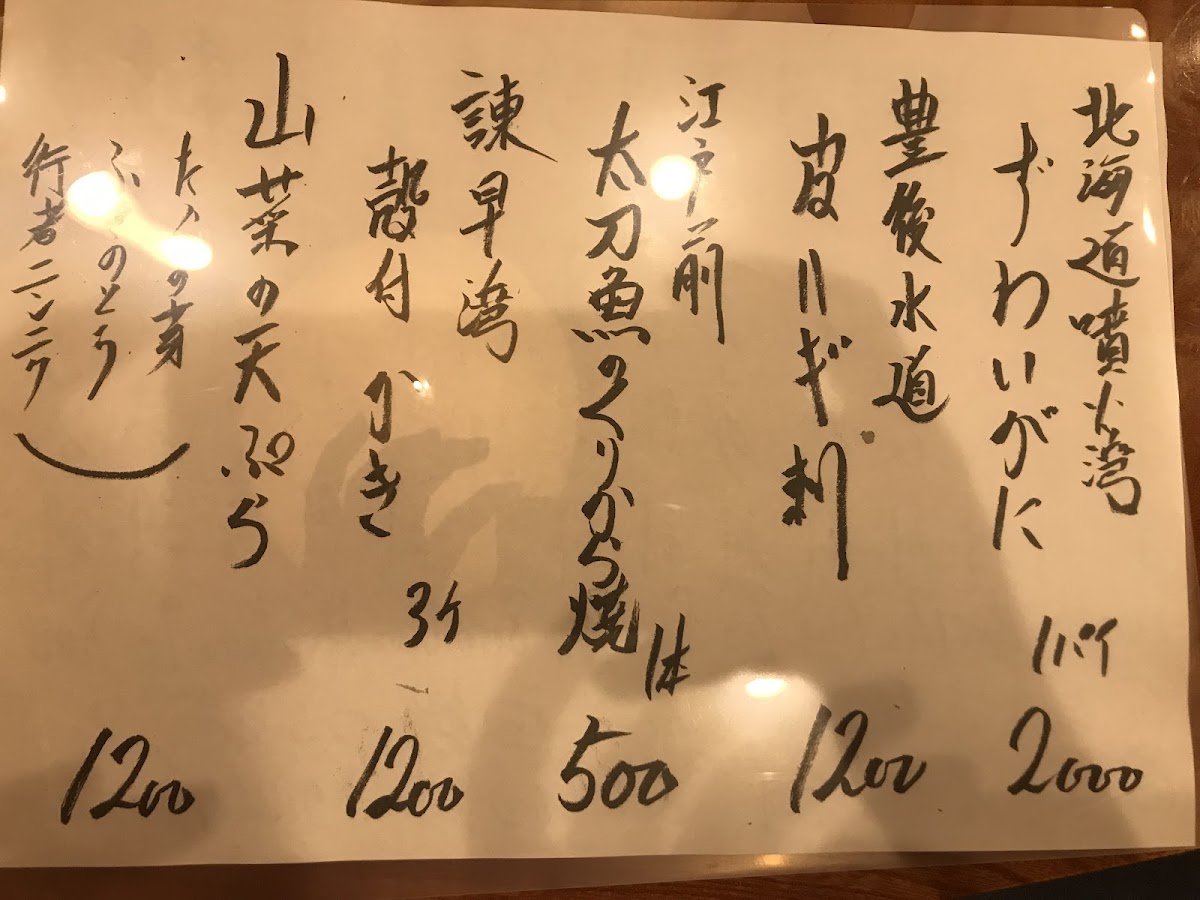 北海道噴火湾
ずわいがに
1パイ
2000
豊後水道
皮ハギ刺
1200
江戸前
太刀魚のくりから焼
1本
500
諫早湾
殻付かき
3ケ
1200
山菜の天ぷら
たらの芽
ふきのとう
行者ニンニク
1200